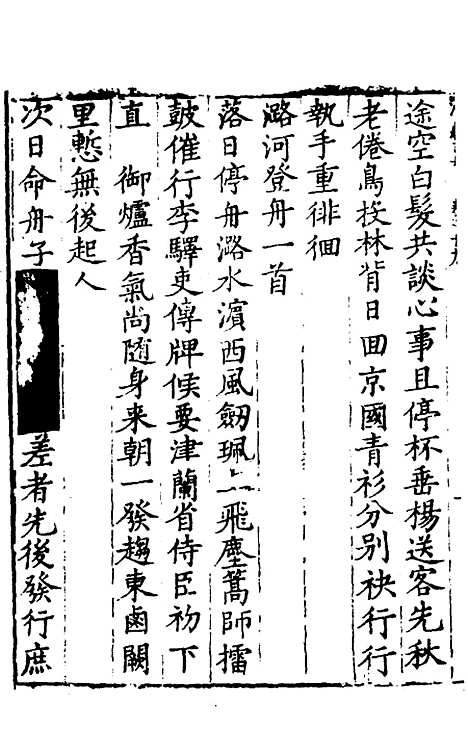 途空白髮共談心事且停杯垂楊送客先秋
老倦鳥投林背日回京國青衫分別袂行行
執手重徘徊
潞河登舟一首
落日停舟潞水濱西風劒珮上飛塵篙師擂
鼓催行李驛吏傳牌候要津蘭省侍臣初下
直　御爐香氣尚隨身来朝一發趨東鹵闕
里慙無後起人
次日命舟子
差者先後發行庶